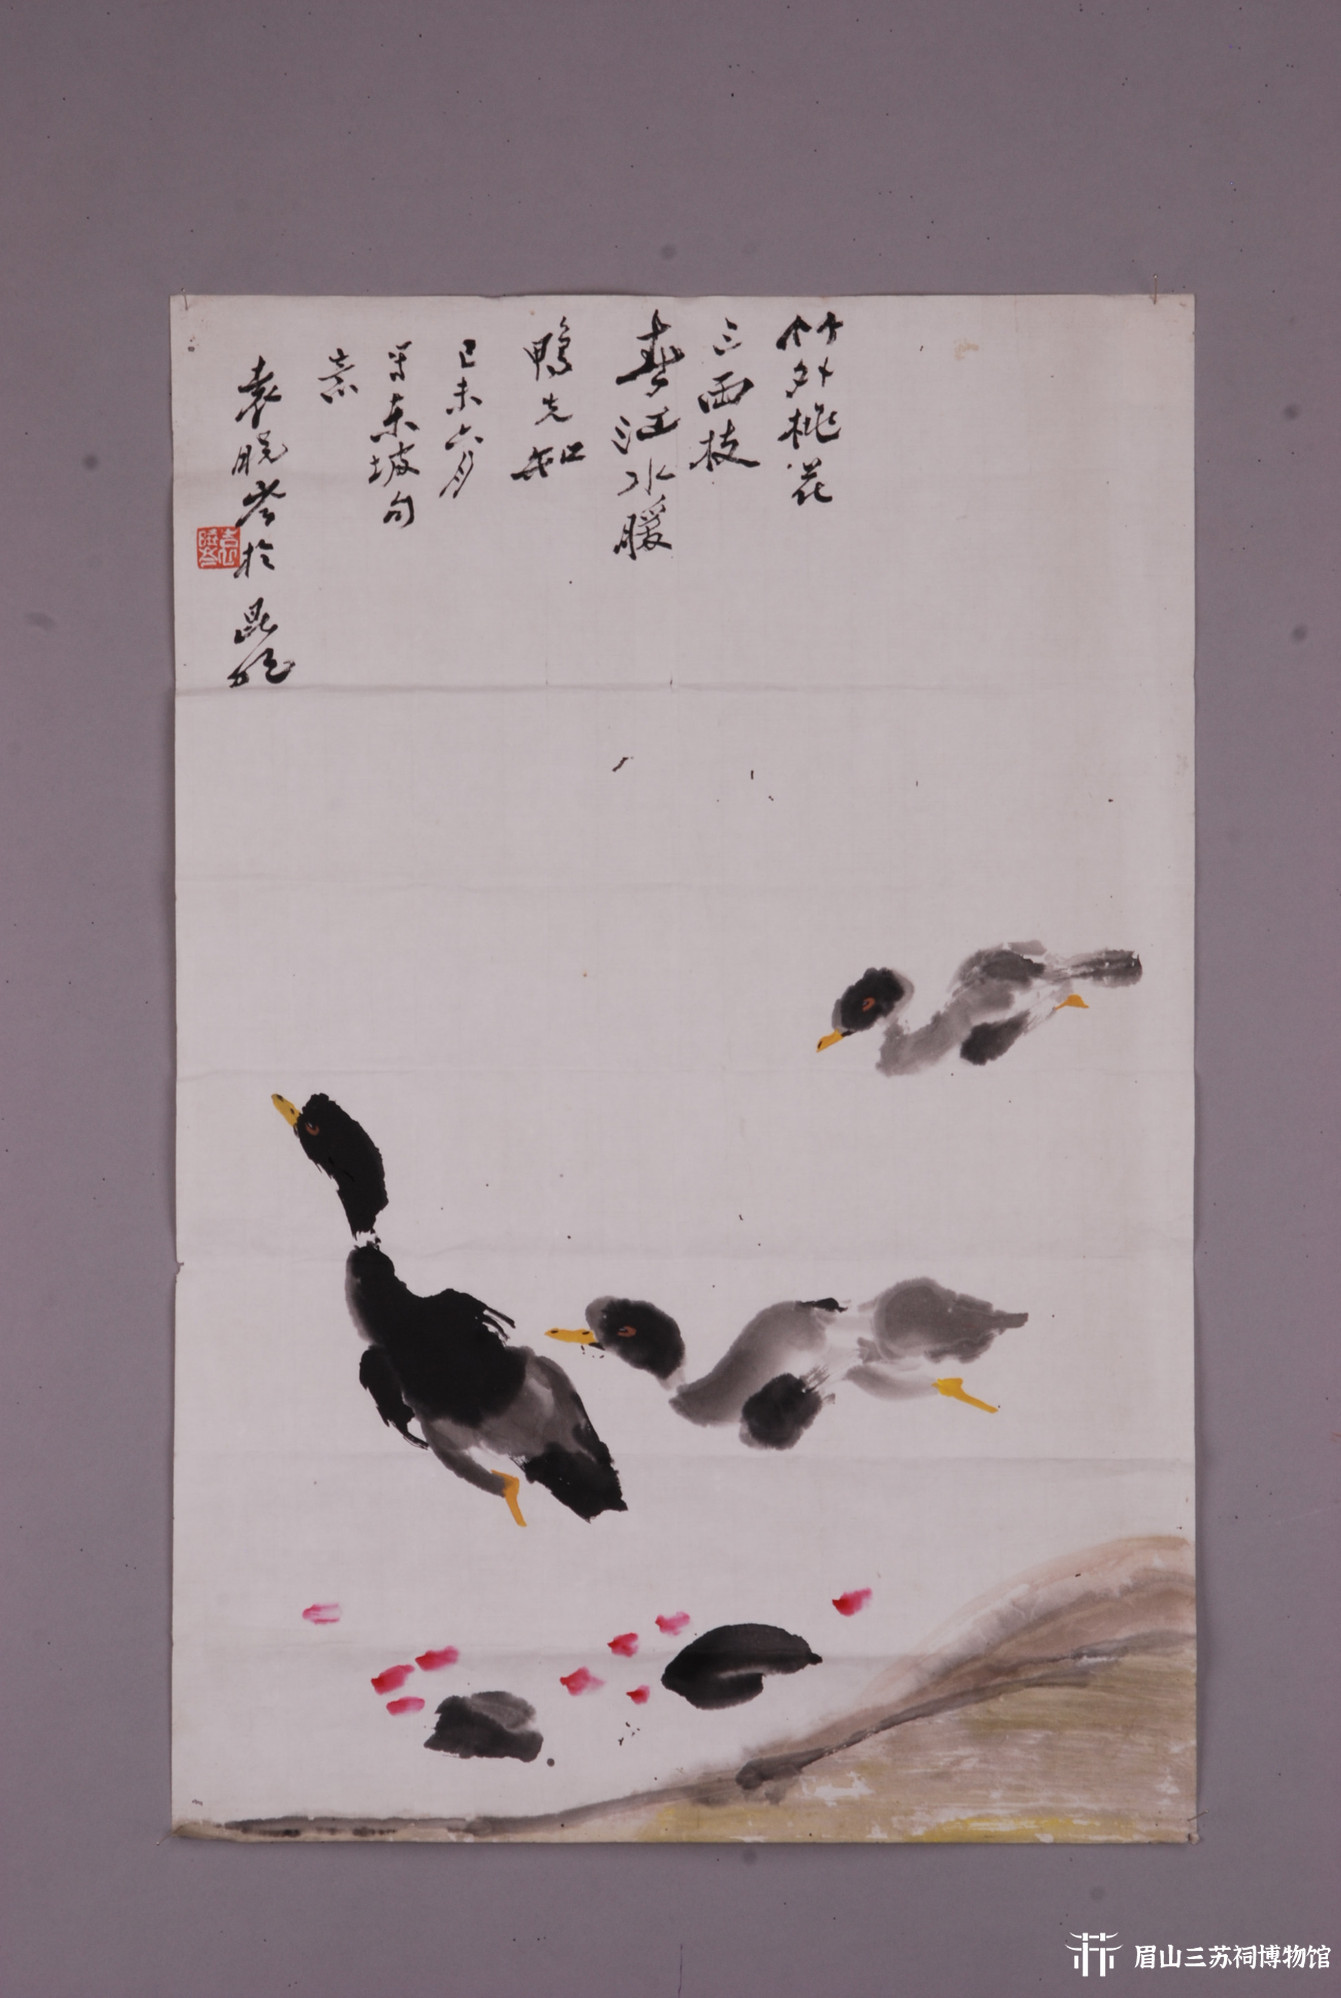 竹外桃花
三两枝
春江水暖
鸭先知
己未六月
写东坡句
意
袁晓岑於昆明
袁晓岑
眉山三苏祠博物馆